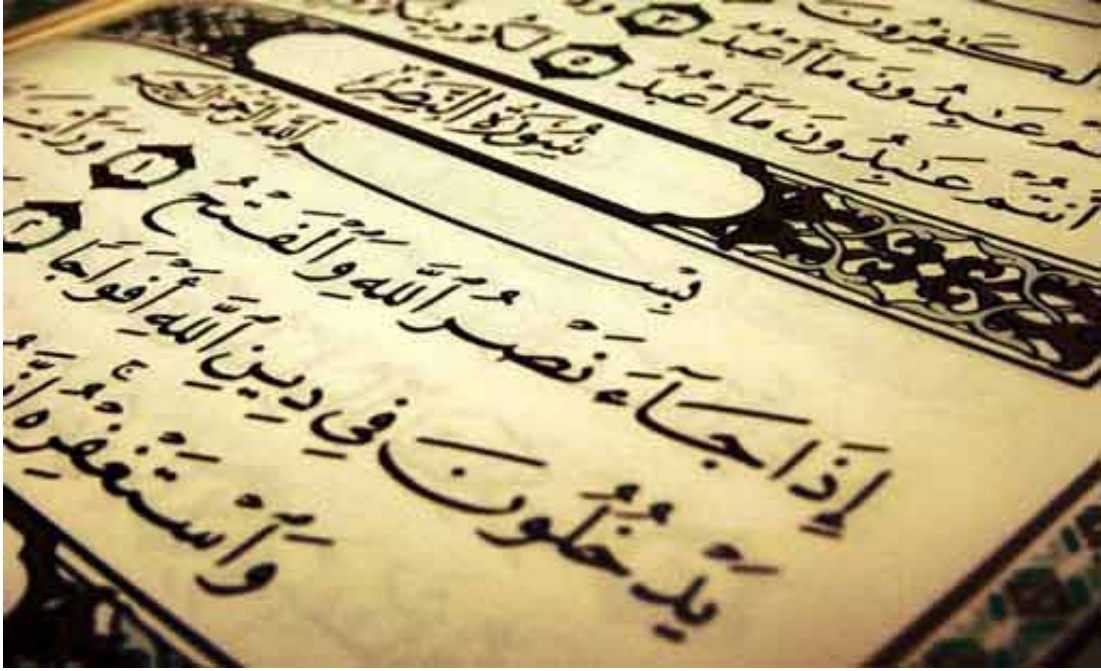 لْكَٰفِرُونَ
تُمْ عَٰبِدُونَ مَآ أَعْبُدُ ٣
أَنتُمْ عَٰبِدُونَ مَآ أَعْبُدُ ٥ لَكُمْ دِينُ
سُورَةُ النَّصْرِ
بِسْمِ ٱللَّهِ ٱلرَّحْمَٰنِ ٱلرَّحِيمِ
إِذَا جَآءَ نَصْرُ ٱللَّهِ وَٱلْفَتْحُ ١ وَرَأَيْتَ
يَدْخُلُونَ فِي دِينِ ٱللَّهِ أَفْوَاجًا ٢
وَٱسْتَغْفِرْهُ إِنَّهُ